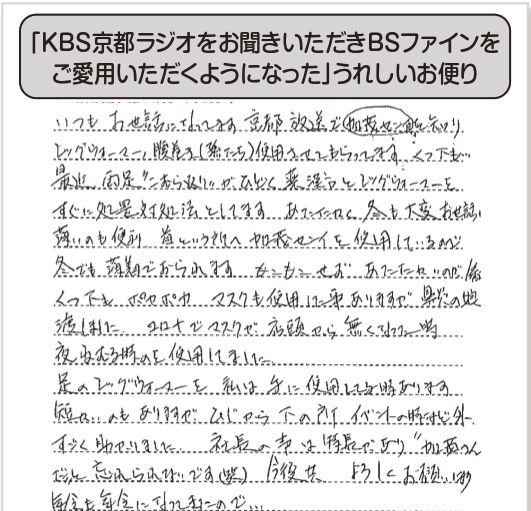 「KBS京都ラジオをお聞きいただきBSファインを
ご愛用いただくようになった」うれしいお便り
いつも お世話になってます 京都放送で 加茂センイ館を知り
レッグウォーマー、腹巻き(薄にち)使用させてもらってます くつ下も…
最近 両足"こむら返り"がひどく 薬 漢方とレッグウォーマーを
すぐに処置 対処法としてます あたたかく 冬も大変お世話
薄いのも便利 首という所へ 加茂センイを使用しているので
冬でも薄着でおられます もこもこせず あたたかいので
くつ下も ポカポカ マスクも使用した事ありますが 娘
渡しました コロナでマスクが店頭から無くなった時
夜 ねむる時のを使用してました
足のレッグウォーマーを 私は 手に使用してる時あります
短かいのもありますが ひじから下の所 イベントの時など 外
すごく助かりました 社長の声は特長があり "加茂さん
忘れられないです(笑) 今後共 よろしくお願い